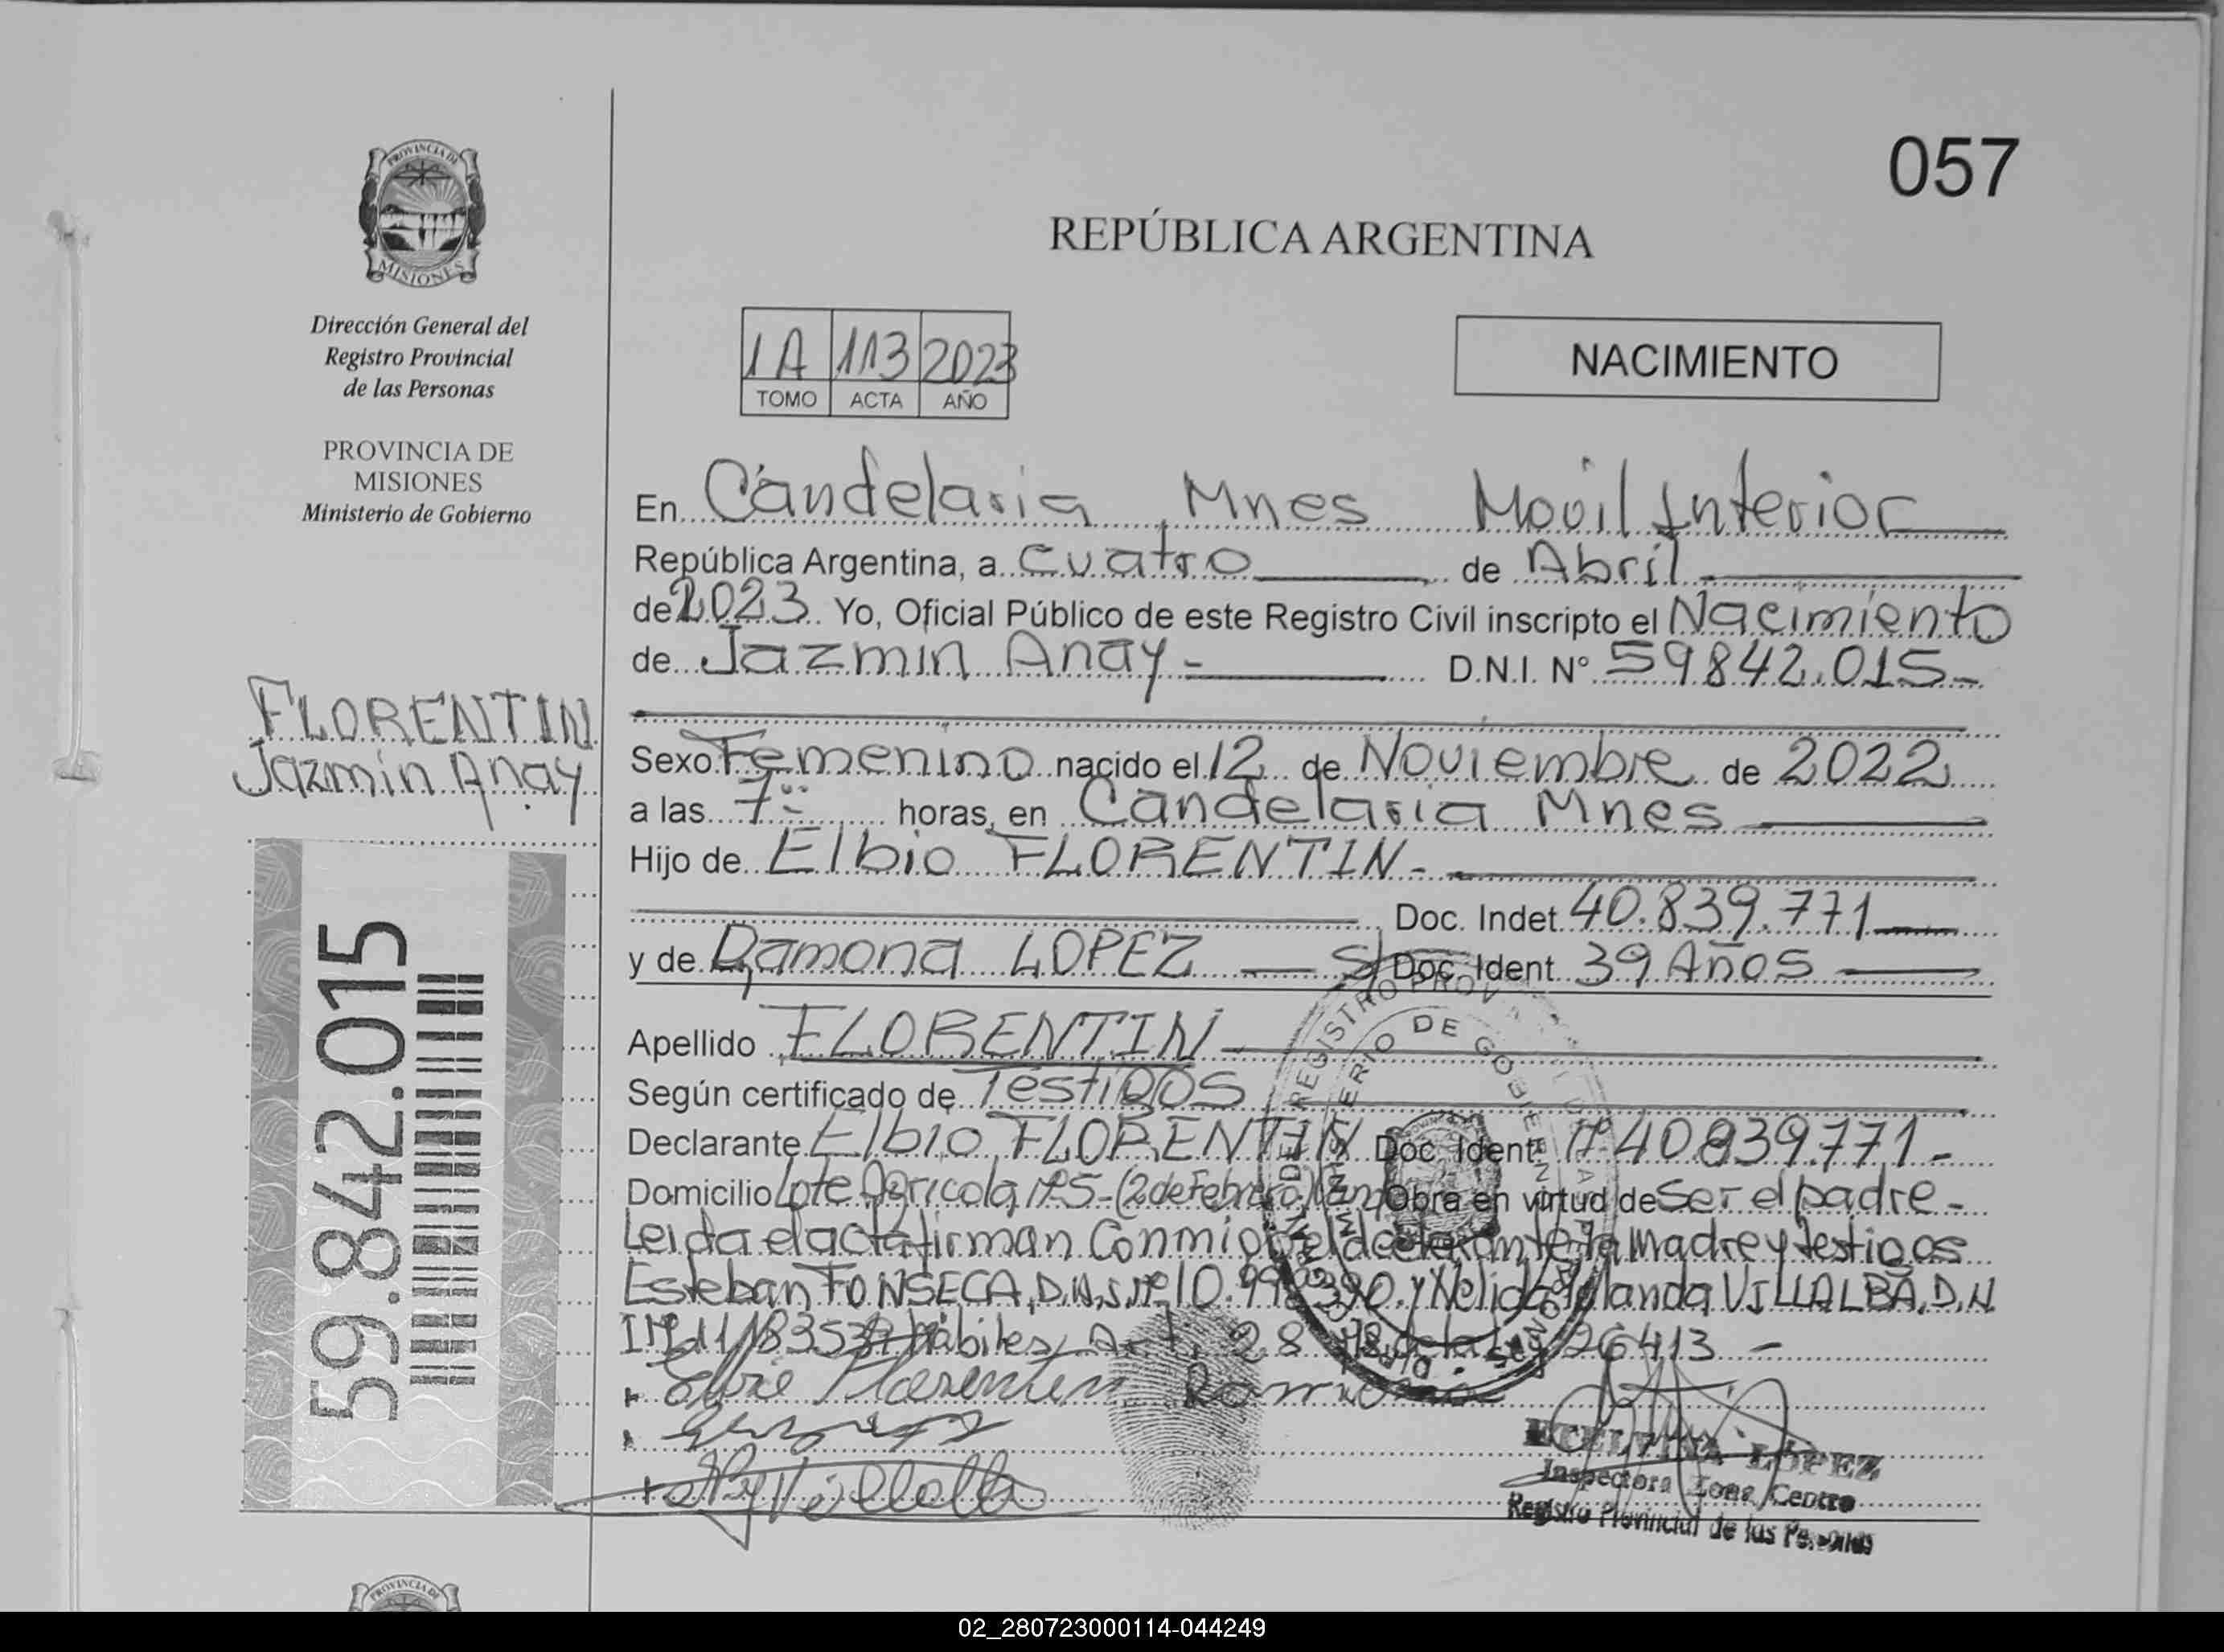 057
PROVINCIA DE
MISIONES
Dirección General del
Registro Provincial
de las Personas
PROVINCIA DE
MISIONES
Ministerio de Gobierno
REPÚBLICA ARGENTINA
1A 113 2023
TOMO ACTA AÑO
NACIMIENTO
En Candelaria Mnes Movil Interior
República Argentina, a cuatro de Abril
de 2023 Yo, Oficial Público de este Registro Civil inscripto el Nacimiento
de Jazmin Anay.- D.N.I. N° 59842.015-
FLORENTIN
Jazmin Anay
Sexo Femenino nacido el 12 de Noviembre de 2022
a las 7 horas, en Candelaria Mnes
Hijo de Elbio FLORENTIN.-
Doc. Indet. 40.839.771
y de Ramona LOPEZ S/ Doc. Ident. 39 Años
Apellido FLORENTIN
Según certificado de Testigos
Declarante Elbio FLORENTIN Doc. Ident. Nº 40839.771-
Domicilio Lote Agricola Nº5-(2 de Febrero) Obra en virtud de ser el padre-
Leida el acta firman Conmigo el declarante la Madre y testigos
Esteban FONSECA, D.N.I. Nº 10. y Nelida Yolanda VILLALBA, D.N
Art. 28 de la Ley 26413 -
Elbio Florentin Ramona
59.842.015
LOPEZ
Inspectora Zona Centro
Registro Provincial de las Personas
REGISTRO PROV
MINISTERIO DE GOBIERNO
PROVINCIA DE
02_280723000114-044249